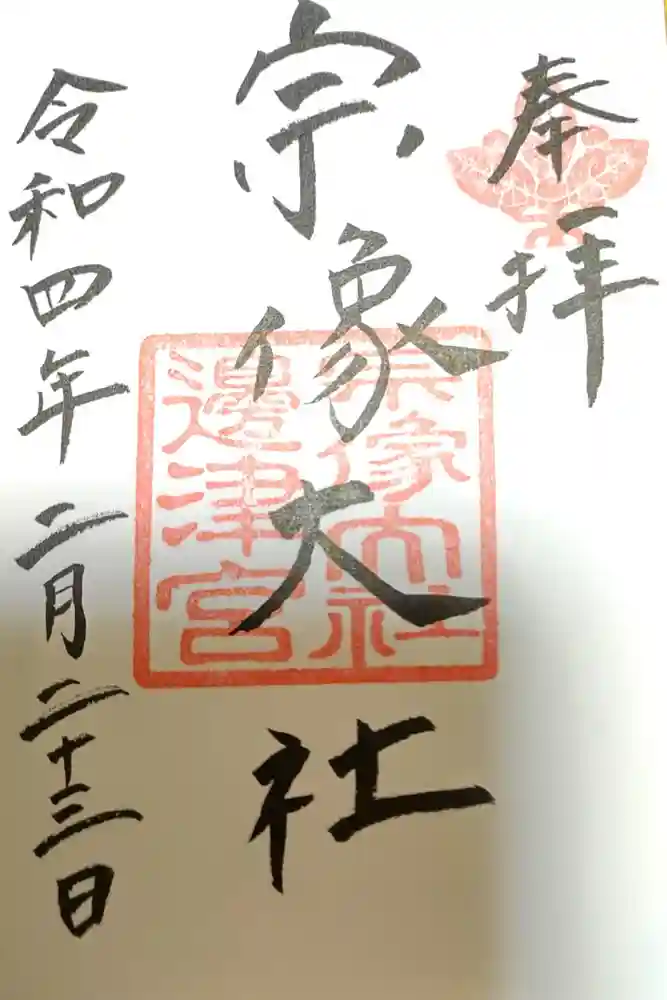 奉拝
宗像大社
宗像大社
邊津宮
令和四年二月二十三日